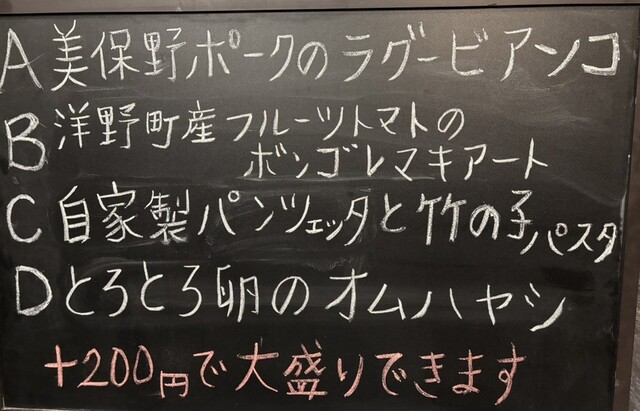 A 美保野ポークのラグービアンコ
B 洋野町産フルーツトマトの
ボンゴレマキアート
C 自家製パンツェッタと竹の子パスタ
D とろとろ卵のオムハヤシ
+200円で大盛りできます